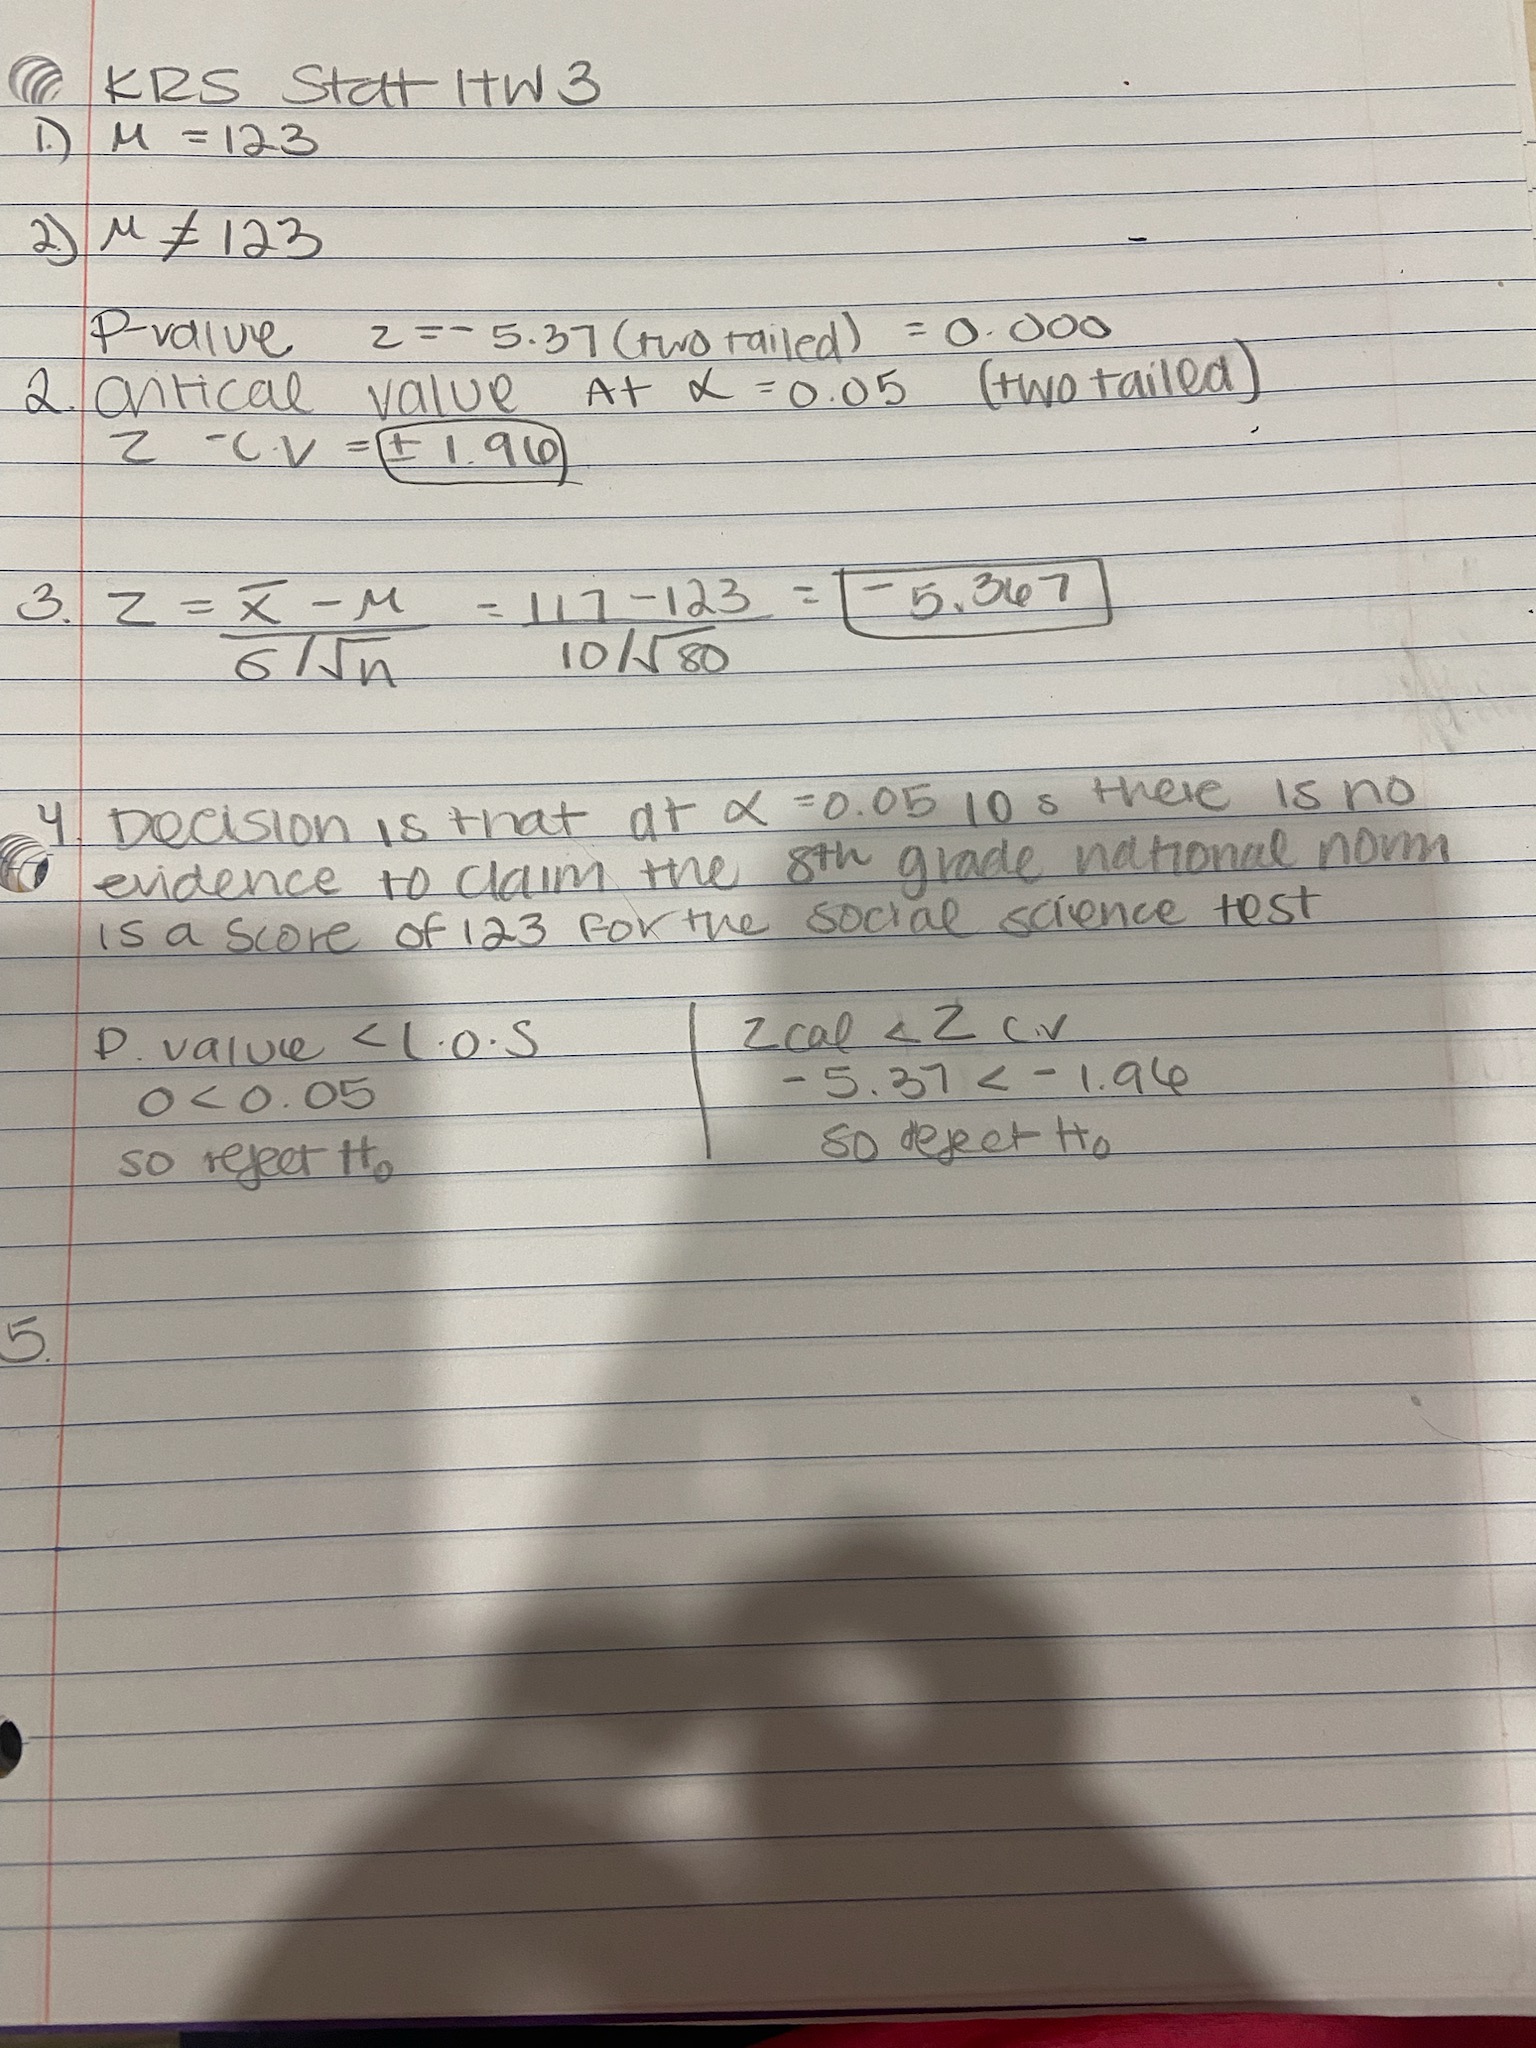 KRS Stat HW 3
1.) μ = 123
2.) μ ≠ 123
P-value z = - 5.37 (two tailed) = 0.000
2. critical value At α = 0.05 (two tailed)
Z - C.V = ± 1.96
3. Z = x̄ - μ / σ/√n = 117 - 123 / 10/√80 = -5.367
4. Decision is that at α = 0.05 l o s there is no
evidence to claim the 8th grade national norm
is a score of 123 for the social science test
P. value < L.O.S
0 < 0.05
so reject H₀
Z cal < Z C.V
- 5.37 < - 1.96
so reject H₀
5.